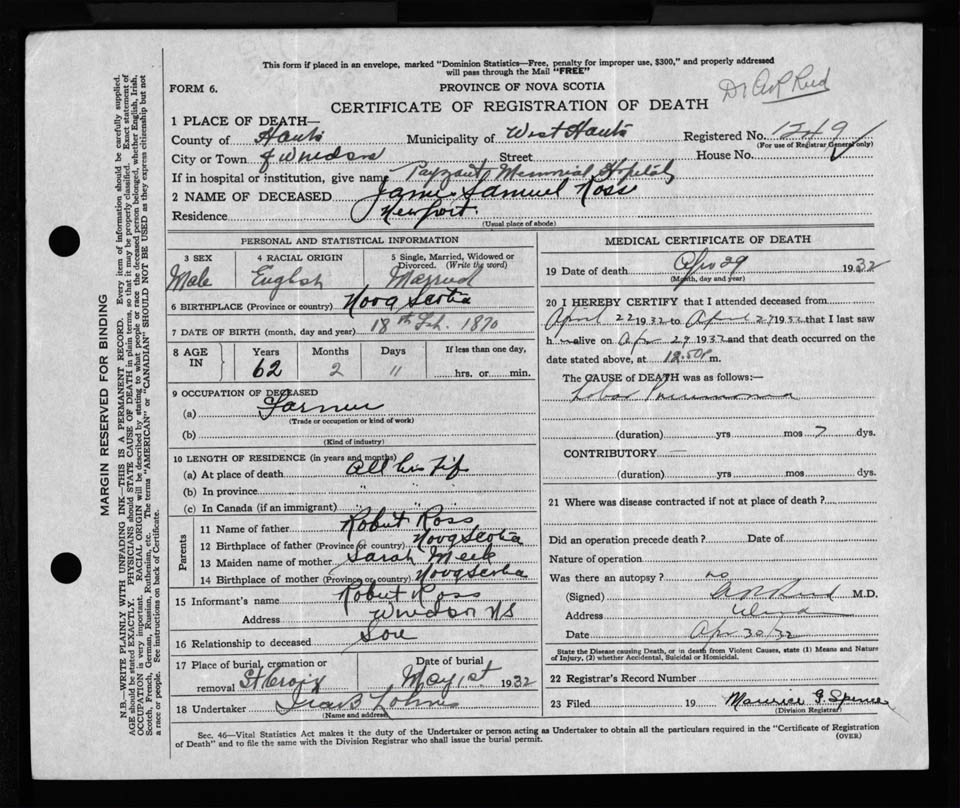 This form if placed in an envelope, marked "Dominion Statistics—Free, penalty for improper use, $300," and properly addressed
will pass through the Mail "FREE"
FORM 6.
PROVINCE OF NOVA SCOTIA
Dr Reid
CERTIFICATE OF REGISTRATION OF DEATH
1 PLACE OF DEATH—
County of Hants Municipality of West Hants Registered No. 1249
(For use of Registrar General only)
City or Town of Windsor Street House No.
If in hospital or institution, give name Payzant Memorial Hospital
2 NAME OF DECEASED James Samuel Ross
Residence Newport
(Usual place of abode)
PERSONAL AND STATISTICAL INFORMATION
3 SEX 4 RACIAL ORIGIN 5 Single, Married, Widowed or
Divorced. (Write the word)
Male English Married
6 BIRTHPLACE (Province or country) Nova Scotia
7 DATE OF BIRTH (month, day and year) 18th Feb. 1870
8 AGE IN Years Months Days If less than one day,
62 2 11 hrs. or min.
9 OCCUPATION OF DECEASED
(a) Farmer
(Trade or occupation or kind of work)
(b)
(Kind of industry)
10 LENGTH OF RESIDENCE (in years and months)
(a) At place of death All his life
(b) In province " "
(c) In Canada (if an immigrant) " " "
Parents
11 Name of father Robert Ross
12 Birthplace of father (Province or country) Nova Scotia
13 Maiden name of mother Sarah Meek
14 Birthplace of mother (Province or country) Nova Scotia
15 Informant's name Robert Ross
Address Windsor NS
16 Relationship to deceased Son
17 Place of burial, cremation or Date of burial
removal St Croix May 1st 1932
18 Undertaker
(Name and address)
MEDICAL CERTIFICATE OF DEATH
19 Date of death Apr 29 1932
(Month, day and year)
20 I HEREBY CERTIFY that I attended deceased from
April 22 1932 to April 29 1932 that I last saw
h m alive on Apr 29 1932 and that death occurred on the
date stated above, at 12.50 P m.
The CAUSE of DEATH was as follows:—
Lobar Pneumonia
(duration) yrs mos 7 dys.
CONTRIBUTORY —
(duration) yrs mos dys.
21 Where was disease contracted if not at place of death?
Did an operation precede death? Date of
Nature of operation
Was there an autopsy? no
(Signed) Reid M.D.
Address Wind
Date Apr 30/32
State the Disease causing Death, or in death from Violent Causes, state (1) Means and Nature
of Injury, (2) whether Accidental, Suicidal or Homicidal.
22 Registrar's Record Number
23 Filed 19 Maurice G. Spence
(Division Registrar)
Sec. 46—Vital Statistics Act makes it the duty of the Undertaker or person acting as Undertaker to obtain all the particulars required in the "Certificate of Registration
of Death" and to file the same with the Division Registrar who shall issue the burial permit.
(OVER)
MARGIN RESERVED FOR BINDING
N.B.—WRITE PLAINLY WITH UNFADING INK—THIS IS A PERMANENT RECORD. Every item of information should be carefully supplied.
AGE should be stated EXACTLY. PHYSICIANS should STATE CAUSE OF DEATH in plain terms, so that it may be properly classified. Exact statement of
OCCUPATION is very important. RACIAL ORIGIN will be described by stating to what people or race the deceased person belonged, whether English, Irish,
Scotch, French, German, Russian, Ruthenian, etc. The terms "AMERICAN" or "CANADIAN" SHOULD NOT BE USED as they express citizenship but not
a race or people. See instructions on back of Certificate.